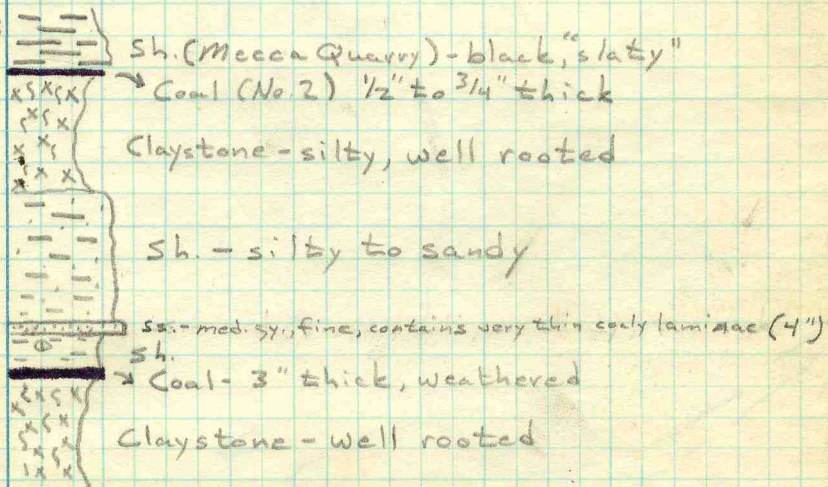 Sh. (Mecca Quarry) - black, "slaty"
Coal (No. 2) 1/2" to 3/4" thick
Claystone - silty, well rooted
Sh. - silty to sandy
ss. - med. gy., fine, contains very thin coaly laminae (4")
sh.
Coal - 3" thick, weathered
Claystone - well rooted